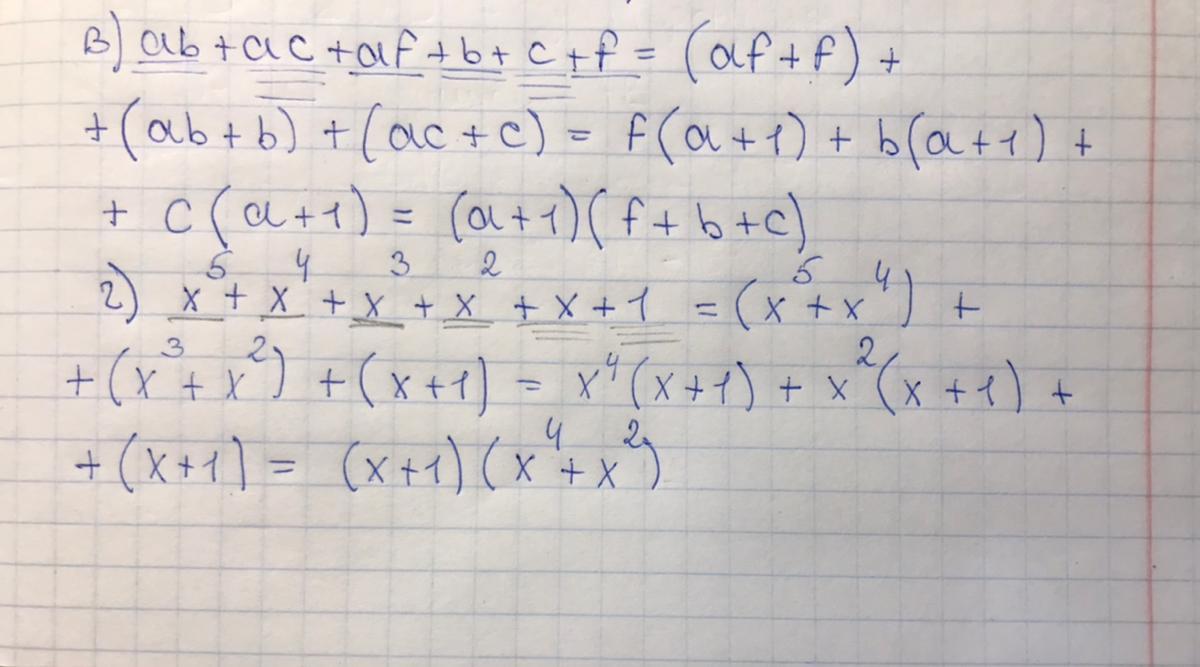 в) ab + ac + af + b + c + f = (af + f) +
+ (ab + b) + (ac + c) = f(a + 1) + b(a + 1) +
+ c(a + 1) = (a + 1)(f + b + c)
г) x⁵ + x⁴ + x³ + x² + x + 1 = (x⁵ + x⁴) +
+ (x³ + x²) + (x + 1) = x⁴(x + 1) + x²(x + 1) +
+ (x + 1) = (x + 1)(x⁴ + x²)